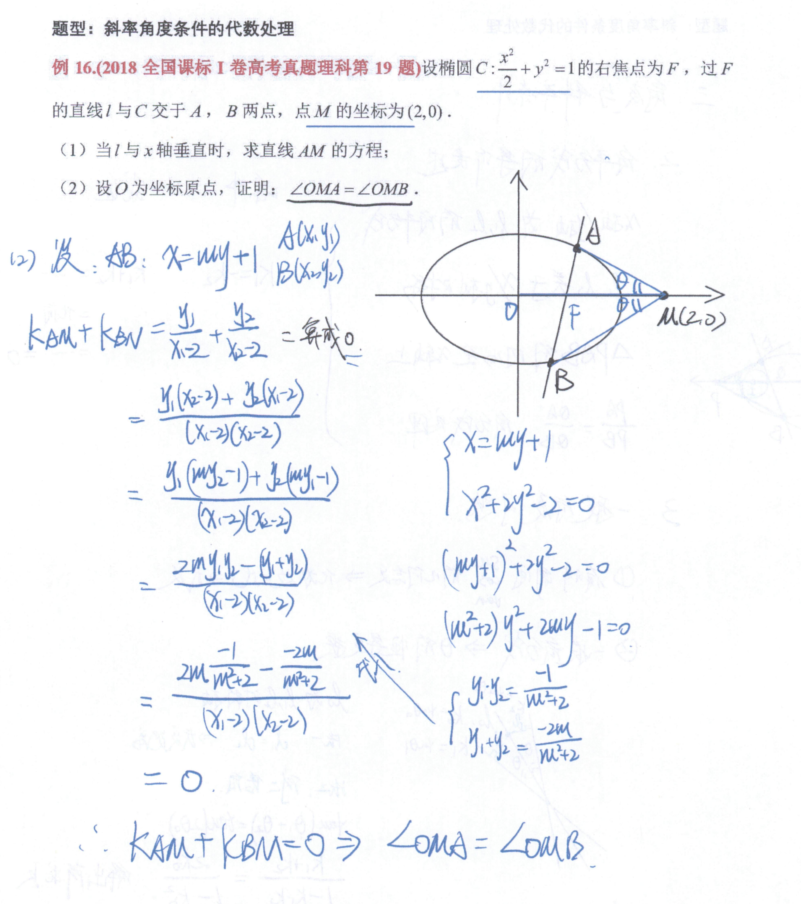 题型：斜率角度条件的代数处理
例 16.(2018 全国课标 I 卷高考真题理科第 19 题)设椭圆 C: x²/2 + y² =1的右焦点为 F ，过 F
的直线 l 与 C 交于 A ， B 两点，点 M 的坐标为 (2,0) .
（1）当 l 与 x 轴垂直时，求直线 AM 的方程；
（2）设 O 为坐标原点，证明：∠OMA = ∠OMB .
(2) 设: AB: x=my+1 A(x₁,y₁)
B(x₂,y₂)
k_AM + k_BN = y₁/(x₁-2) + y₂/(x₂-2) = 算成0
= [y₁(x₂-2) + y₂(x₁-2)]/[(x₁-2)(x₂-2)]
= [y₁(my₂-1) + y₂(my₁-1)]/[(x₁-2)(x₂-2)]
= [2my₁y₂ - (y₁+y₂)]/[(x₁-2)(x₂-2)]
= [2m (-1)/(m²+2) - (-2m)/(m²+2)]/[(x₁-2)(x₂-2)]
= 0.
A
θ
θ
O
F
M(2,0)
B
{ x=my+1
x²+2y²-2=0
(my+1)²+2y²-2=0
(m²+2)y²+2my-1=0
代入
{ y₁·y₂ = -1/(m²+2)
y₁+y₂ = -2m/(m²+2)
∴ k_AM + k_BM = 0 ⇒ ∠OMA = ∠OMB.